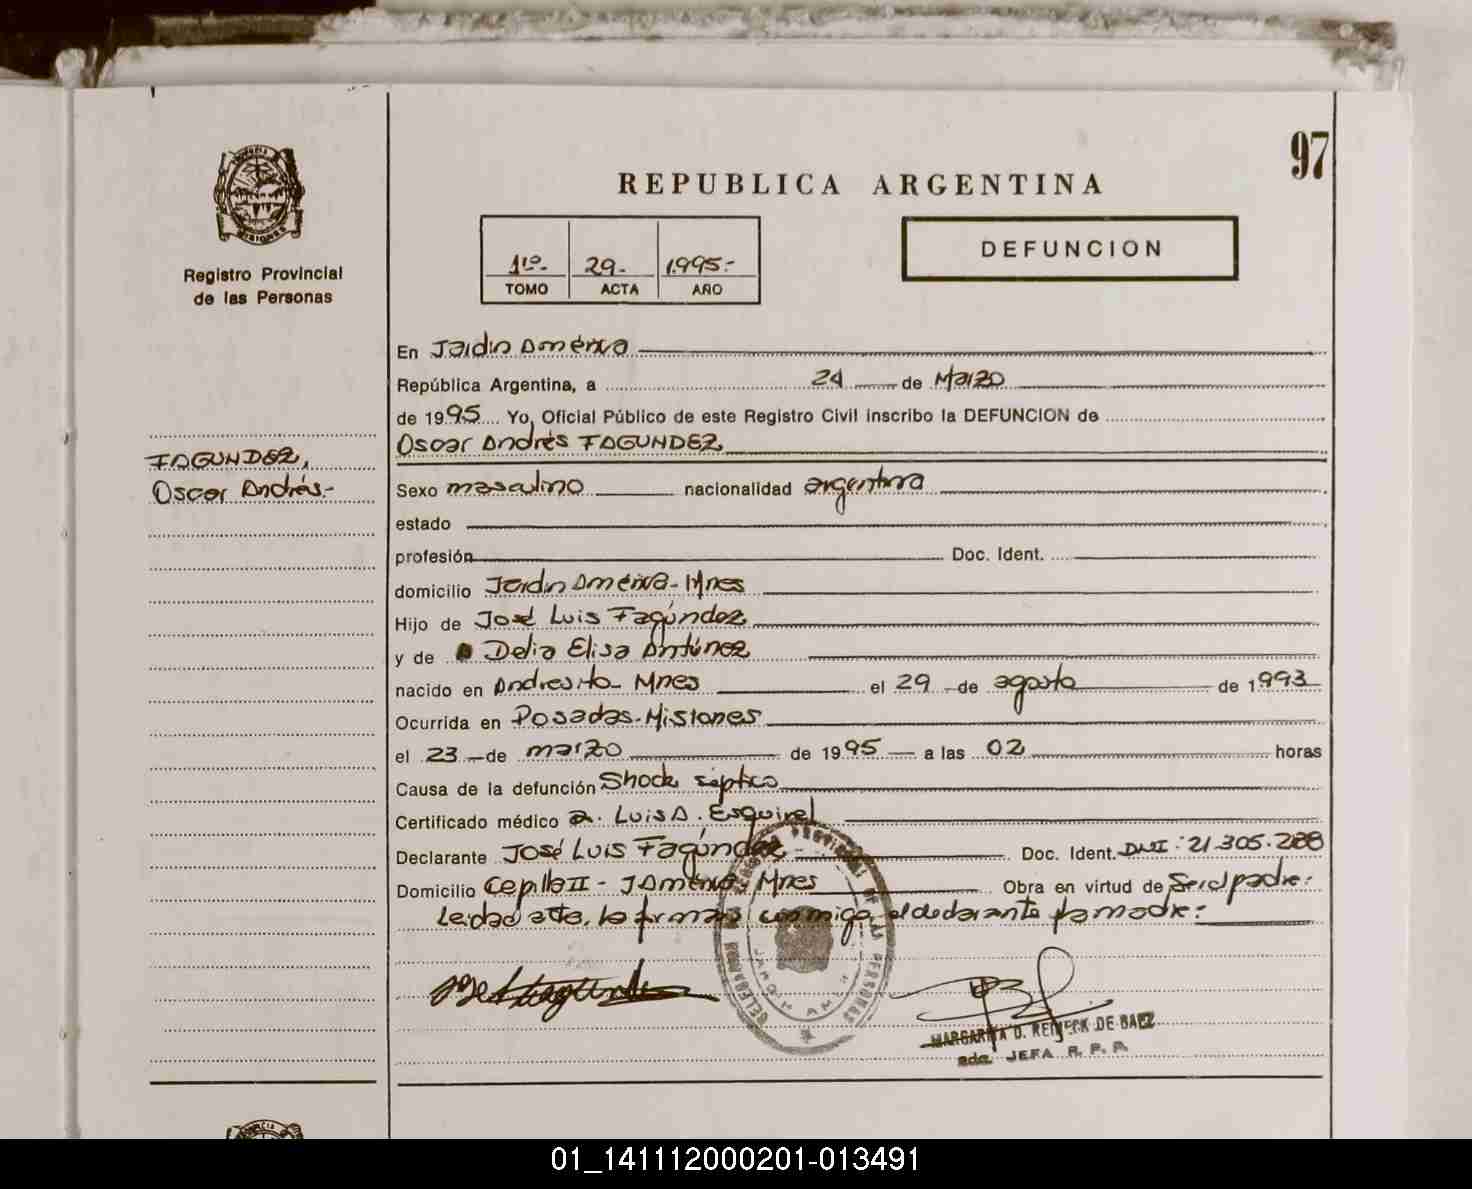 97
REPUBLICA ARGENTINA
PROVINCIA DE
MISIONES
Registro Provincial
de las Personas
1º.- 29.- 1.995.-
TOMO ACTA AÑO
DEFUNCION
FAGUNDEZ,
Oscar Andrés.-
En Jardín América
República Argentina, a 24 de Marzo
de 1995 Yo, Oficial Público de este Registro Civil inscribo la DEFUNCION de
Oscar Andrés FAGUNDEZ
Sexo masculino nacionalidad argentina
estado
profesión Doc. Ident.
domicilio Jardín América - Mnes
Hijo de José Luis Fagúndez
y de Delia Elisa Antúnez
nacido en Andresito Mnes el 29 de agosto de 1993
Ocurrida en Posadas - Misiones
el 23 de marzo de 1995 a las 02 horas
Causa de la defunción Shock séptico
Certificado médico Luis A. Esquivel
Declarante José Luis Fagúndez Doc. Ident. DNI: 21.305.288
Domicilio Capilla II - J América - Mnes Obra en virtud de Ser el padre:
Leída el acta, la firman conmigo, el declarante y la madre:
REGISTRO PROVINCIAL DE LAS PERSONAS
JARDIN AME
MARGARITA D. REINECK DE BAEZ
JEFA R. P. P.
01_141112000201-013491